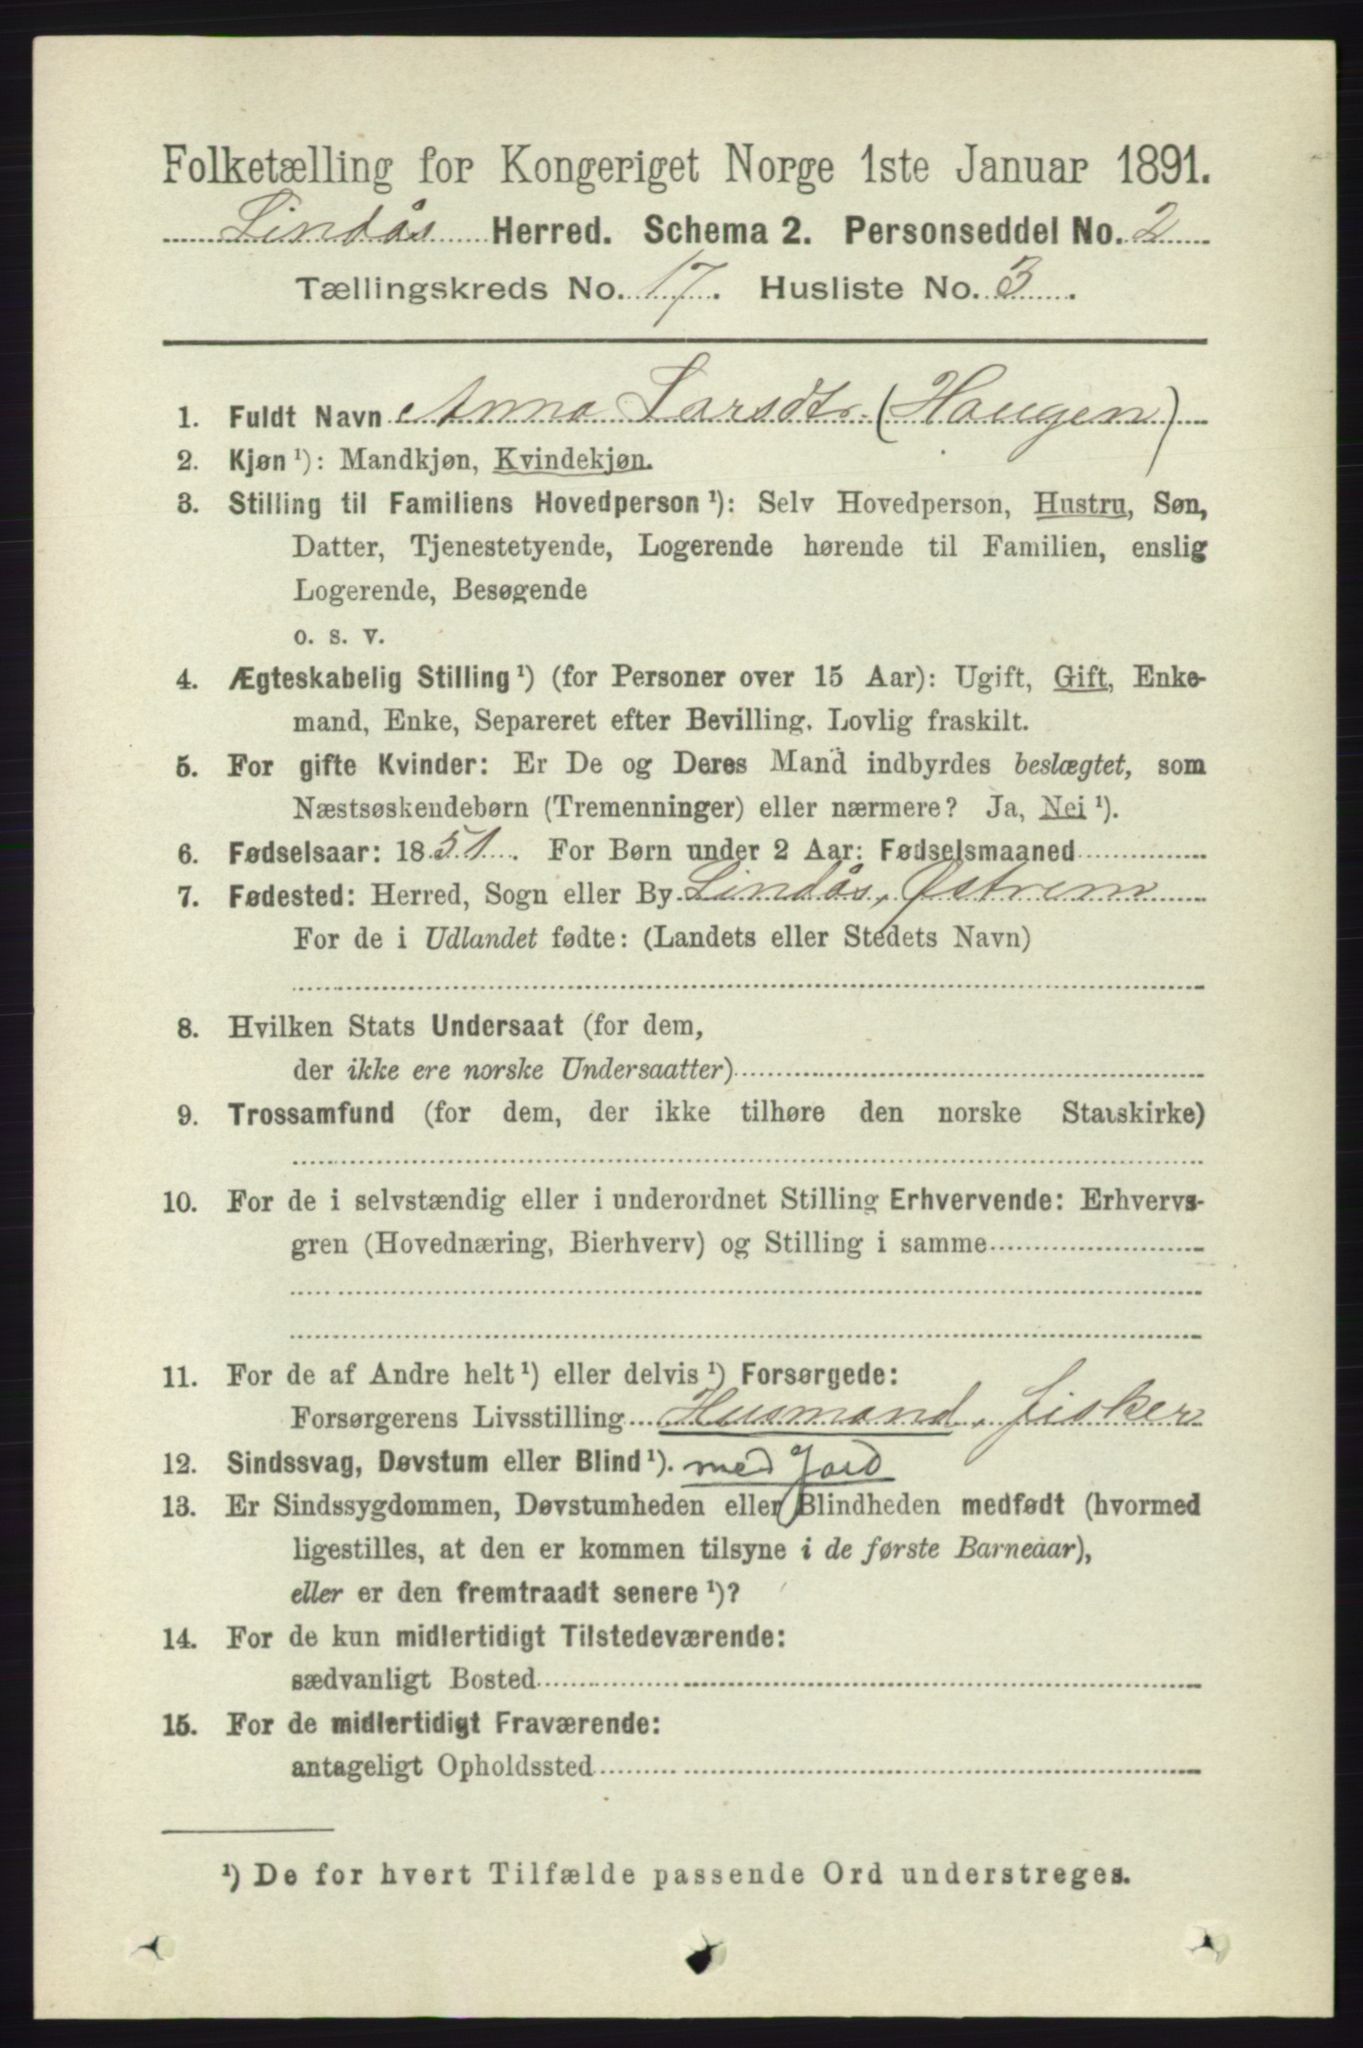 Folketælling for Kongeriget Norge 1ste Januar 1891.
Lindås Herred. Schema 2. Personseddel No. 2
Tællingskreds No. 17. Husliste No. 3.
1. Fuldt Navn Anna Larsdtr. (Haugen)
2. Kjøn ¹): Mandkjøn, Kvindekjøn.
3. Stilling til Familiens Hovedperson ¹): Selv Hovedperson, Hustru, Søn,
Datter, Tjenestetyende, Logerende hørende til Familien, enslig
Logerende, Besøgende
o. s. v.
4. Ægteskabelig Stilling ¹) (for Personer over 15 Aar): Ugift, Gift, Enke-
mand, Enke, Separeret efter Bevilling. Lovlig fraskilt.
5. For gifte Kvinder: Er De og Deres Mand indbyrdes beslægtet, som
Næstsøskendebørn (Tremenninger) eller nærmere? Ja, Nei ¹).
6. Fødselsaar: 1851. For Børn under 2 Aar: Fødselsmaaned
7. Fødested: Herred, Sogn eller By Lindås, Østrem
For de i Udlandet fødte: (Landets eller Stedets Navn)
8. Hvilken Stats Undersaat (for dem,
der ikke ere norske Undersaatter)
9. Trossamfund (for dem, der ikke tilhøre den norske Statskirke)
10. For de i selvstændig eller i underordnet Stilling Erhvervende: Erhvervs-
gren (Hovednæring, Bierhverv) og Stilling i samme
11. For de af Andre helt ¹) eller delvis ¹) Forsørgede:
Forsørgerens Livsstilling Husmand, fisker
12. Sindssvag, Døvstum eller Blind ¹). med Jord
13. Er Sindssygdommen, Døvstumheden eller Blindheden medfødt (hvormed
ligestilles, at den er kommen tilsyne i de første Barneaar),
eller er den fremtraadt senere ¹)?
14. For de kun midlertidigt Tilstedeværende:
sædvanligt Bosted
15. For de midlertidigt Fraværende:
antageligt Opholdssted
¹) De for hvert Tilfælde passende Ord understreges.